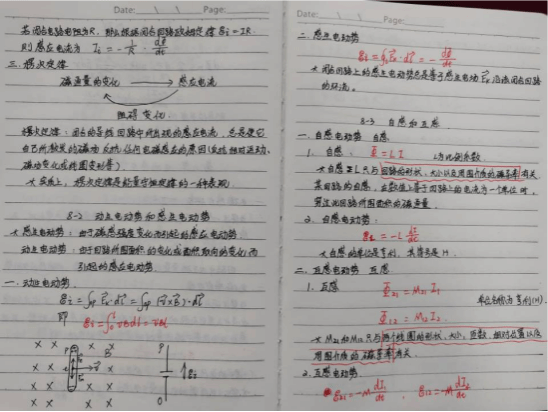 Date: Page:
若闭合电路电阻为R，则从根据闭合回路欧姆定律 εi = IR.
则感应电流为 Ii = -1/R · dΦ/dt
三. 楞次定律
磁通量的变化 → 感应电流
阻碍 变化
楞次定律：闭合的导线回路中所出现的感应电流，总是使它
自己所激发的磁场反抗任何电磁感应的原因（反抗相对运动、
磁场变化或线圈变形等）.
* 实质上，楞次定律是能量守恒定律的一种表现
8-2 动生电动势和感生电动势
* 感生电动势：由于磁感强度变化而引起的感应电动势
动生电动势：由于回路所围面积的变化或面积取向的变化而
引起的感应电动势
一. 动生电动势
εi = ∫OP Ek·dl = ∫OP (v×B)·dl
即 εi = ∫0l vBdl = vBl
× × × ×
P
B
v
O
P
εi
O
Date: Page:
二. 感生电动势
εi = ∮L Ek·dl = -dΦ/dt
* 闭合回路上的感生电动势也是等于感生电场 Ek 沿该闭合回路
的环流。
8-3 自感和互感
一. 自感电动势 自感
1. 自感： Φ = LI L为比例系数
* 自感 L 只与回路的形状、大小以及周围介质的磁导率有关
某回路的自感，在数值上等于回路上的电流为一个单位时，
穿过此回路所围面积的磁通量
2. 自感电动势：
εL = -L dI/dt
* 自感的单位是亨利，其符号是 H.
二. 互感电动势 互感
1. 互感 Φ21 = M21 I1
单位名称为亨利(H).
Φ12 = M12 I2
* M21 和 M12 只与两个线圈的形状、大小、匝数、相对位置以及
周围介质的磁导率有关
2. 互感电动势
ε21 = -M dI1/dt , ε12 = -M dI2/dt